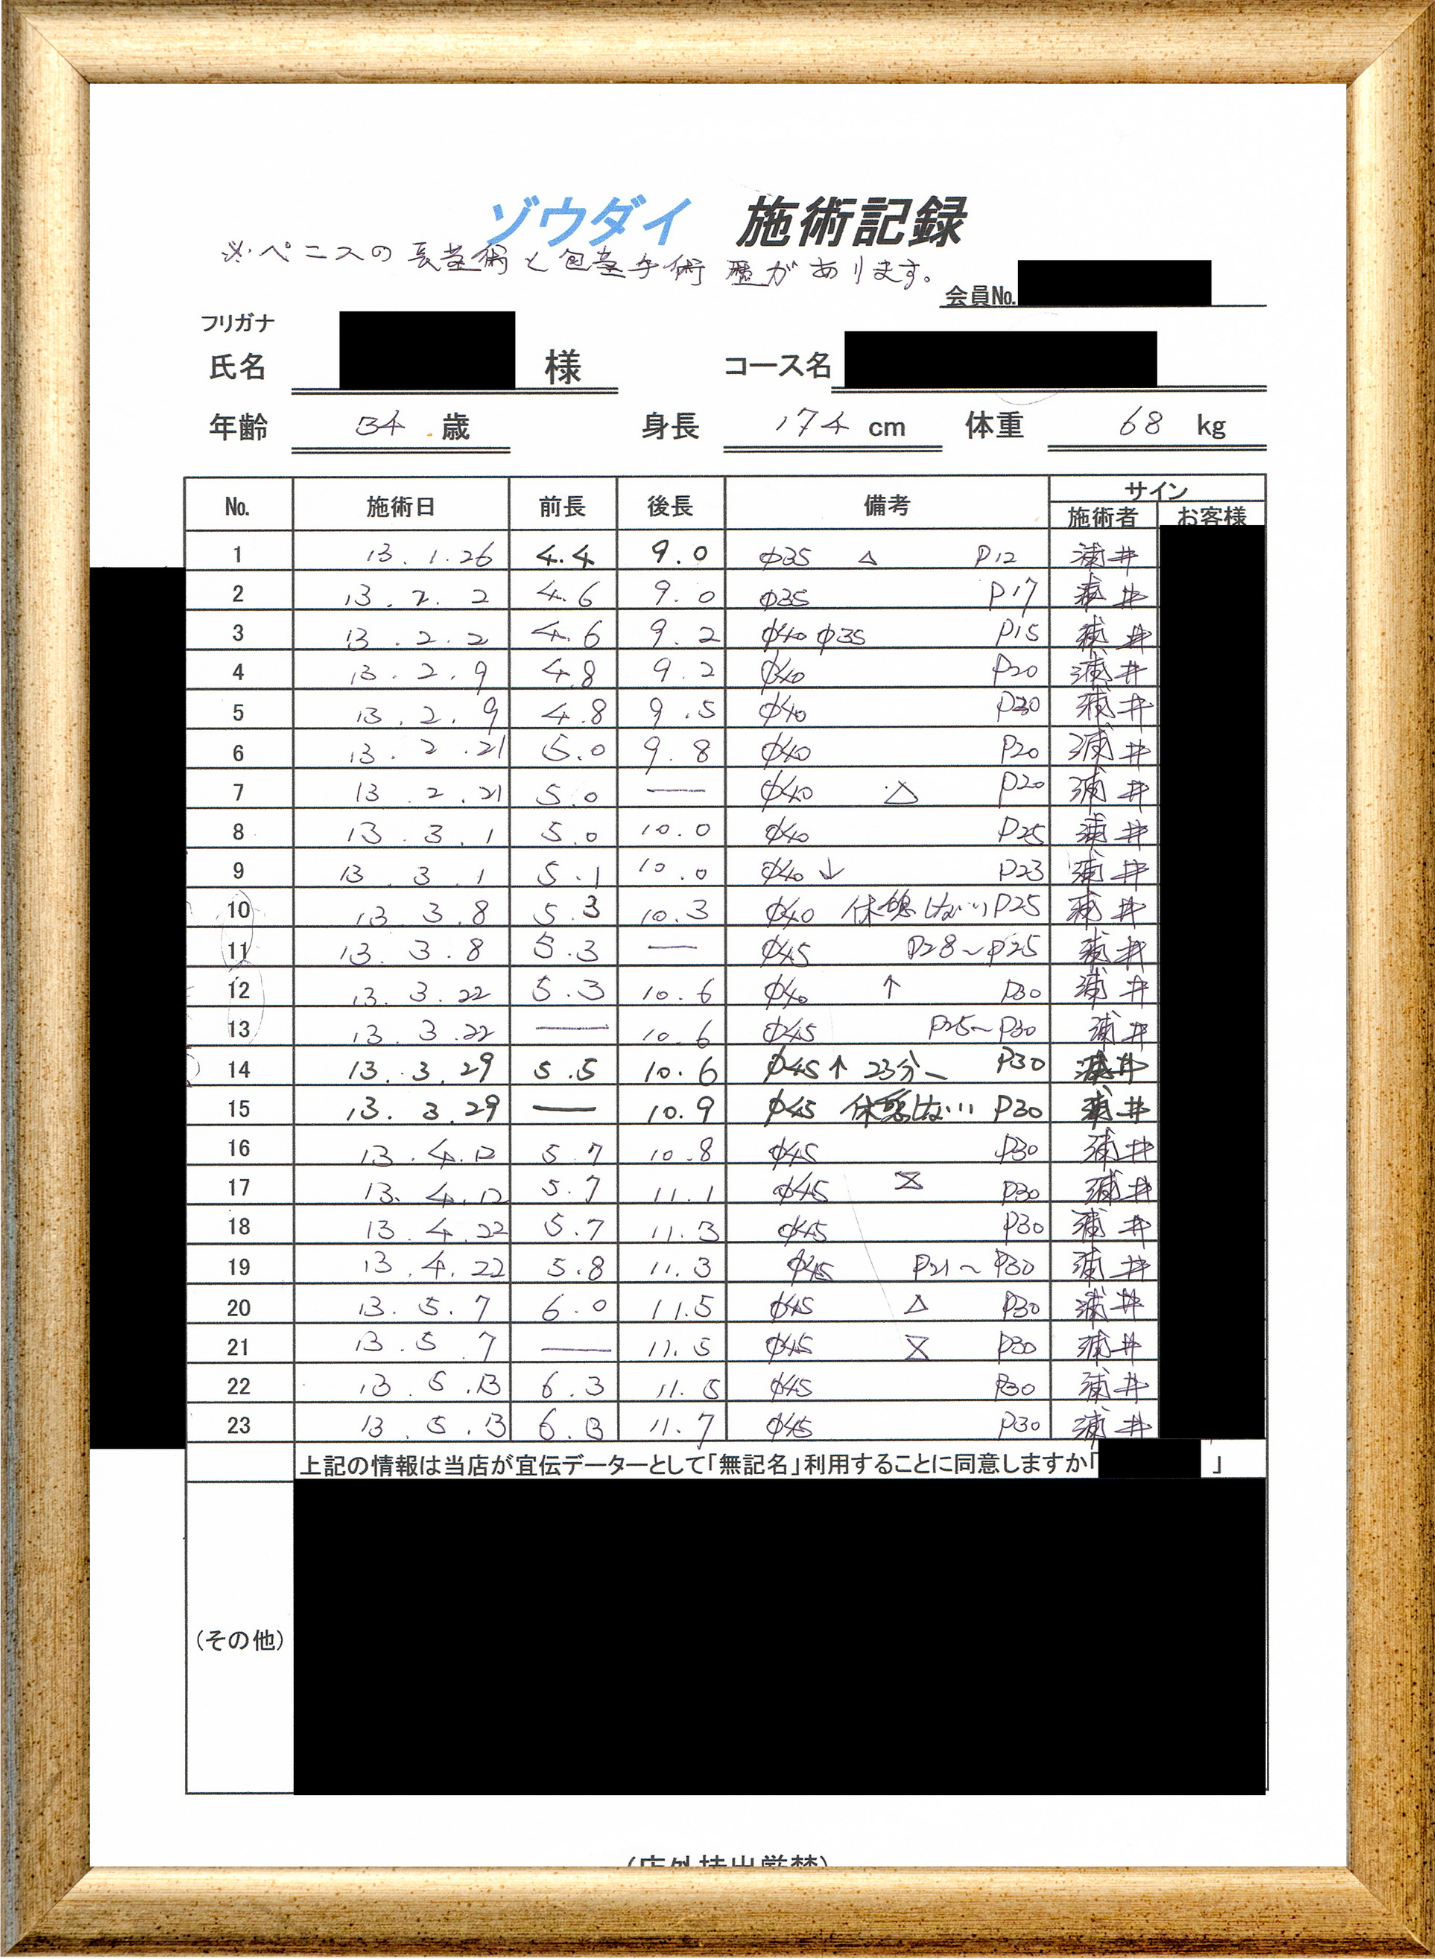 ゾウダイ 施術記録
※ペニスの長茎術と包茎手術歴があります。
会員No.
フリガナ
氏名 様 コース名
年齢 34 歳 身長 174 cm 体重 68 kg
No. 施術日 前長 後長 備考 サイン
施術者 お客様
1 13.1.26 4.4 9.0 φ35 △ P12 浦井
2 13.2.2 4.6 9.0 φ35 P17 浦井
3 13.2.2 4.6 9.2 φ40 φ35 P15 浦井
4 13.2.9 4.8 9.2 φ40 P20 浦井
5 13.2.9 4.8 9.5 φ40 浦井
6 13.2.21 5.0 9.8 φ40 P20 浦井
7 13.2.21 5.0 — φ40 △ P20 浦井
8 13.3.1 5.0 10.0 φ40 P25 浦井
9 13.3.1 5.1 10.0 φ40 ↓ P23 浦井
10 13.3.8 5.3 10.3 φ40 休憩しない P25 浦井
11 13.3.8 5.3 — φ45 P28~P25 浦井
12 13.3.22 5.3 10.6 φ40 ↑ P30 浦井
13 13.3.22 — 10.6 φ45 P25~P30 浦井
14 13.3.29 5.5 10.6 φ45↑ 23分~ P30 浦井
15 13.3.29 — 10.9 φ45 休憩しない P30 浦井
16 13.4.12 5.7 10.8 φ45 P30 浦井
17 13.4.12 5.7 11.1 φ45 P30 浦井
18 13.4.22 5.7 11.3 φ45 P30 浦井
19 13.4.22 5.8 11.3 φ45 P21~P30 浦井
20 13.5.7 6.0 11.5 φ45 △ P30 浦井
21 13.5.7 — 11.5 φ45 P30 浦井
22 13.5.13 6.3 11.5 φ45 P30 浦井
23 13.5.13 6.3 11.7 φ45 P30 浦井
上記の情報は当店が宣伝データーとして「無記名」利用することに同意しますか「 」
(その他)
(店外持出厳禁)